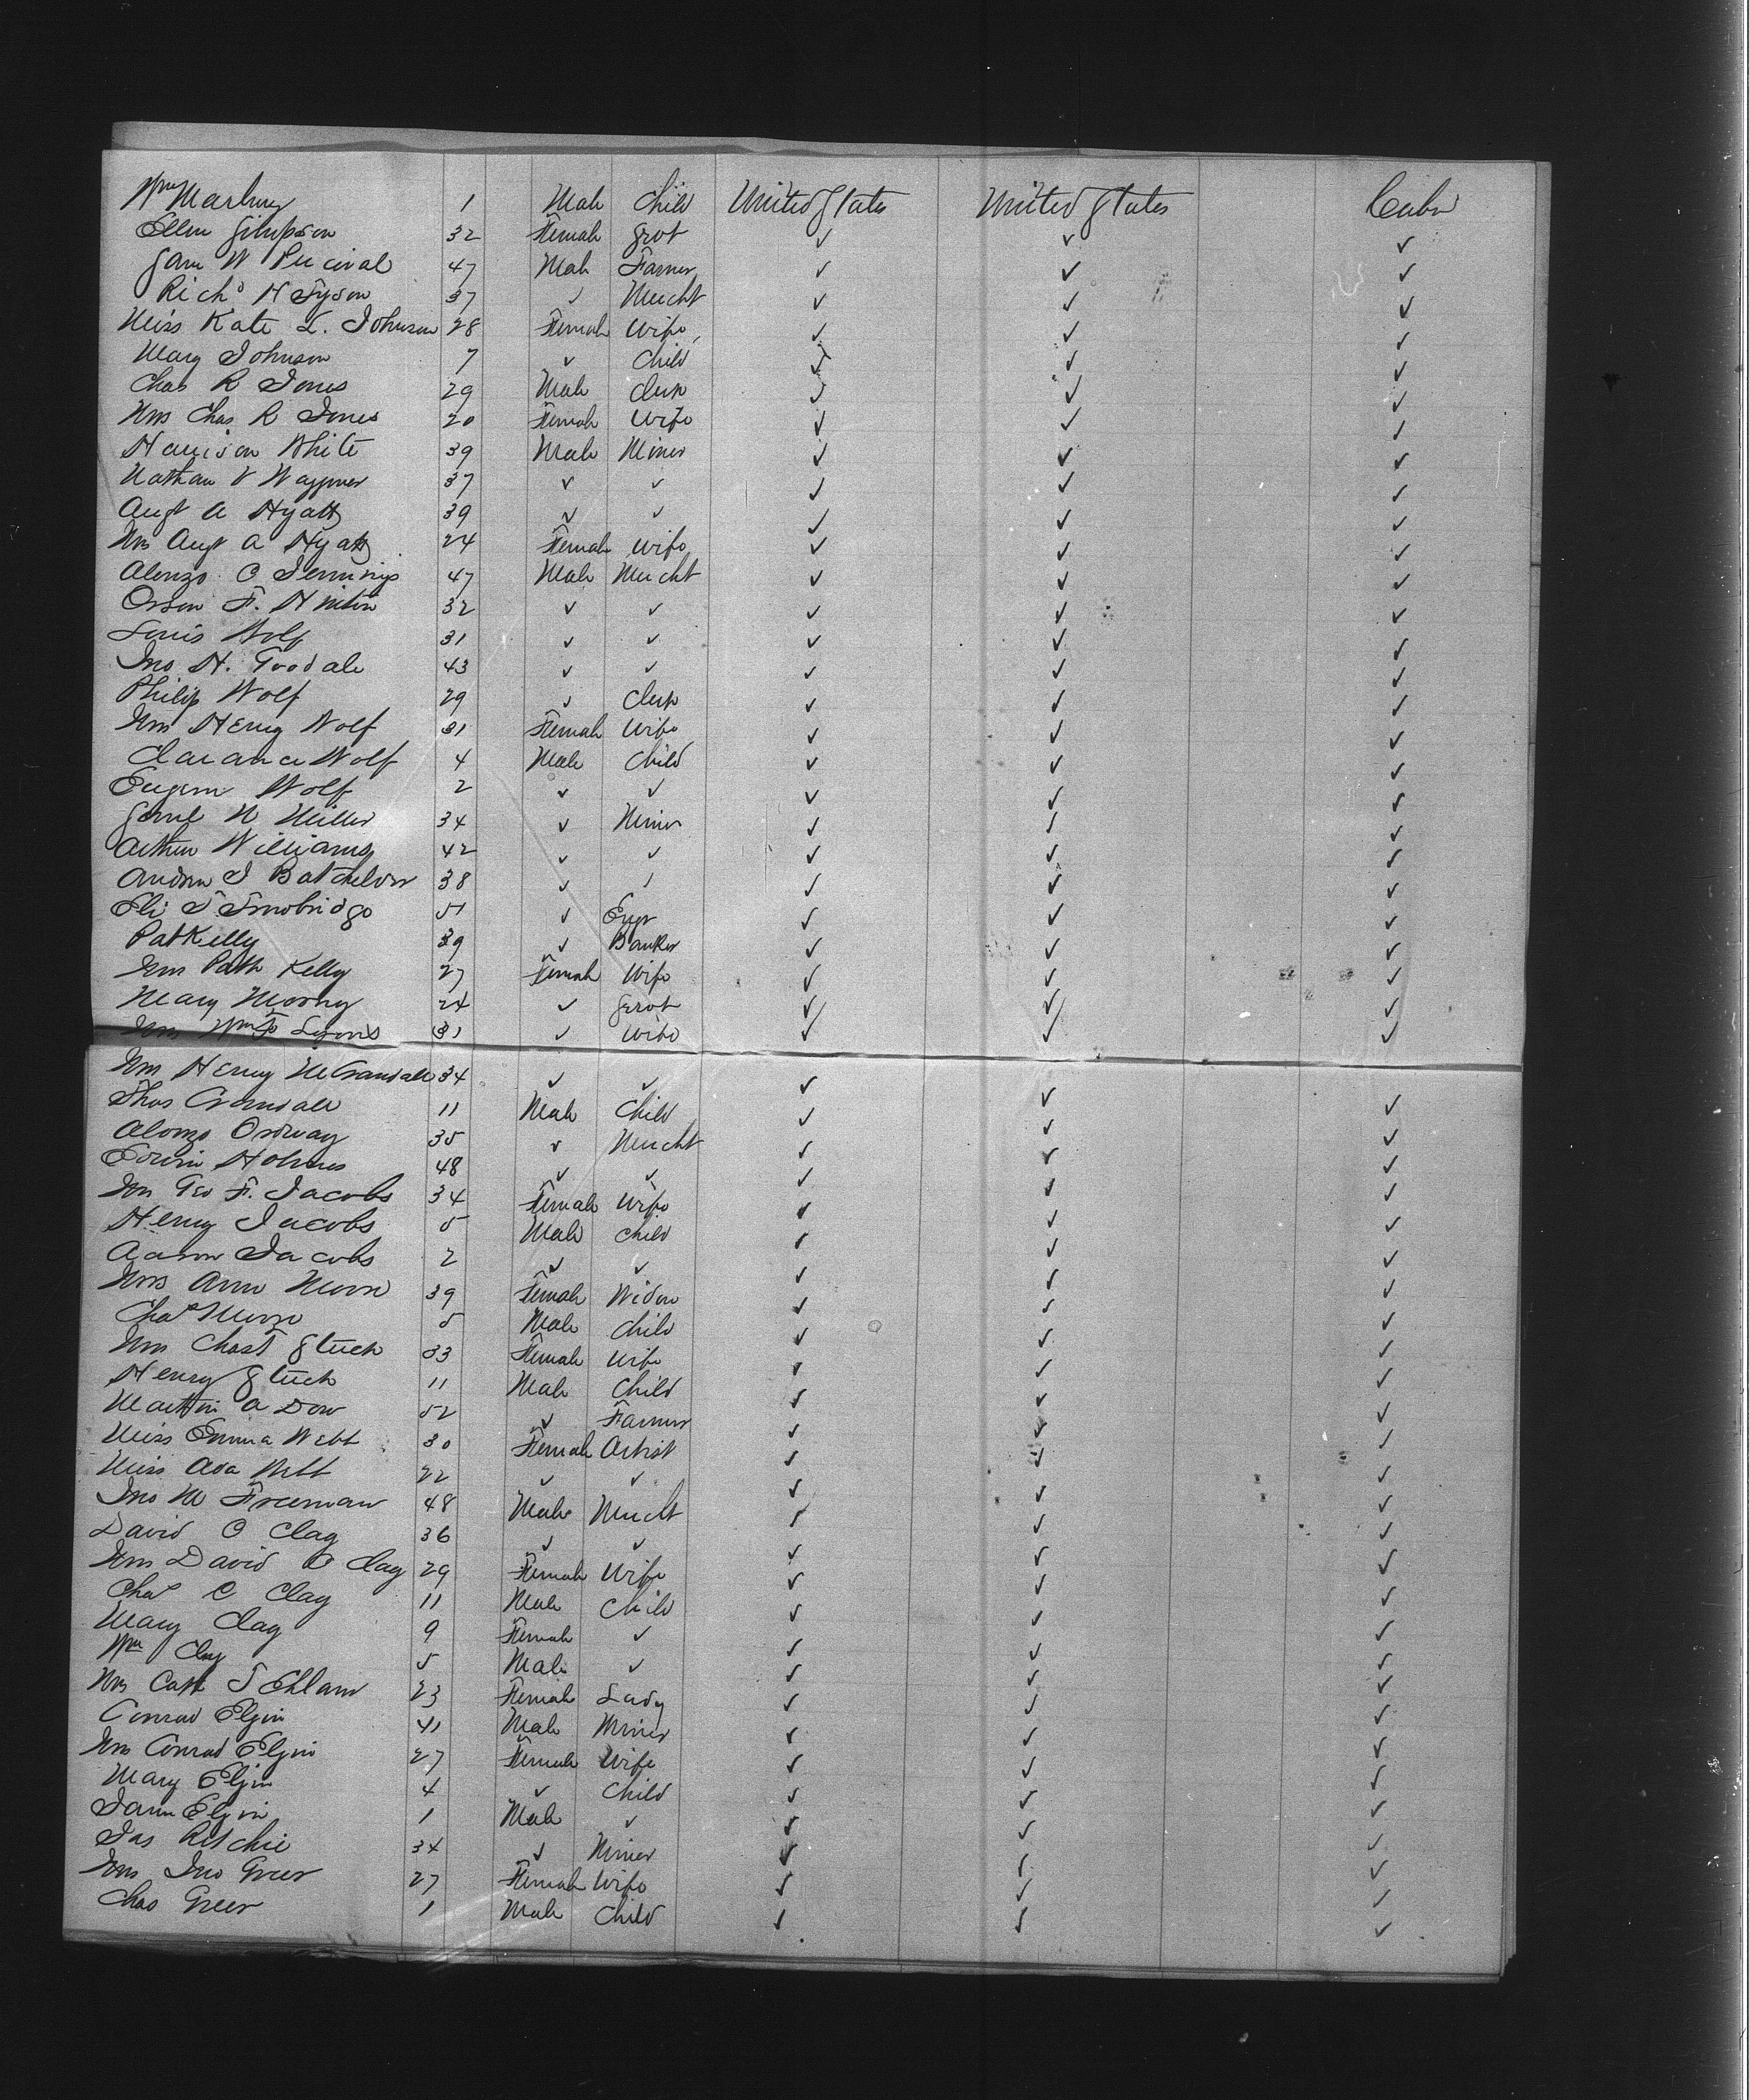 Wm Marbury 1 Male Child United States United States Cabn
Ellen Simpson 32 Female Srvt ✓ ✓ ✓
Saml W Percival 47 Male Farmer ✓ ✓ ✓
Richd H Tyson 37 ✓ Mercht ✓ ✓ ✓
Miss Kate L. Johnson 28 Female Wife ✓ ✓ ✓
Mary Johnson 7 ✓ Child ✓ ✓ ✓
Chas R Jones 29 Male Clerk ✓ ✓ ✓
Mrs Chas R Jones 20 Female Wife ✓ ✓ ✓
Harrison White 39 Male Miner ✓ ✓ ✓
Nathan V Wagner 37 ✓ ✓ ✓ ✓ ✓
Augt A Hyatt 39 ✓ ✓ ✓ ✓ ✓
Mrs Augt A Hyatt 24 Female Wife ✓ ✓ ✓
Alonzo C Jennings 47 Male Mercht ✓ ✓ ✓
Orson F. Hinton 32 ✓ ✓ ✓ ✓ ✓
Louis Wolf 31 ✓ ✓ ✓ ✓ ✓
Jno H. Goodale 43 ✓ ✓ ✓ ✓ ✓
Philip Wolf 29 ✓ Clerk ✓ ✓ ✓
Mrs Henry Wolf 31 Female Wife ✓ ✓ ✓
Clarance Wolf 4 Male Child ✓ ✓ ✓
Eugene Wolf 2 ✓ ✓ ✓ ✓ ✓
Saml N Miller 34 ✓ Miner ✓ ✓ ✓
Arthur Williams 42 ✓ ✓ ✓ ✓ ✓
Andrew J Batchelor 38 ✓ ✓ ✓ ✓ ✓
Eli T Trowbridge 51 ✓ Engr ✓ ✓ ✓
Pat Kelly 39 ✓ Banker ✓ ✓ ✓
Mrs Patk Kelly 27 Female Wife ✓ ✓ ✓
Mary 24 ✓ Servt ✓ ✓ ✓
Mrs Wm F Lyons 31 ✓ Wife ✓ ✓ ✓
Mrs Henry M Crandall 34 ✓ ✓ ✓ ✓ ✓
Thos Crandall 11 Male Child ✓ ✓ ✓
Alonzo Ordway 35 ✓ Mercht ✓ ✓ ✓
Edwin Holmes 48 ✓ ✓ ✓ ✓ ✓
Mrs Geo F. Jacobs 34 Female Wife ✓ ✓ ✓
Henry Jacobs 5 Male Child ✓ ✓ ✓
Aaron Jacobs 2 ✓ ✓ ✓ ✓ ✓
Mrs Ann Morse 39 Female Widow ✓ ✓ ✓
Chas Morse 5 Male Child ✓ ✓ ✓
Mrs Chas T Stuck 33 Female Wife ✓ ✓ ✓
Henry Stuck 11 Male Child ✓ ✓ ✓
Martin A Dow 52 ✓ Farmer ✓ ✓ ✓
Miss Emma Webb 30 Female Artist ✓ ✓ ✓
Miss Ada Webb 22 ✓ ✓ ✓ ✓ ✓
Jno M Freeman 48 Male Mercht ✓ ✓ ✓
David C Clag 36 ✓ ✓ ✓ ✓ ✓
Mrs David C Clag 29 Female Wife ✓ ✓ ✓
Chas C Clag 11 Male Child ✓ ✓ ✓
Mary Clag 9 Female ✓ ✓ ✓ ✓
Wm Clag 5 Male ✓ ✓ ✓ ✓
Mrs Cath 23 Female Lady ✓ ✓ ✓
Conrad Elgin 41 Male Miner ✓ ✓ ✓
Mrs Conrad Elgin 27 Female Wife ✓ ✓ ✓
Mary Elgin 4 ✓ Child ✓ ✓ ✓
Elgin 1 Male ✓ ✓ ✓ ✓
Jas Ritchie 34 ✓ Miner ✓ ✓ ✓
Mrs Jno Greer 27 Female Wife ✓ ✓ ✓
Chas Greer 1 Male Child ✓ ✓ ✓